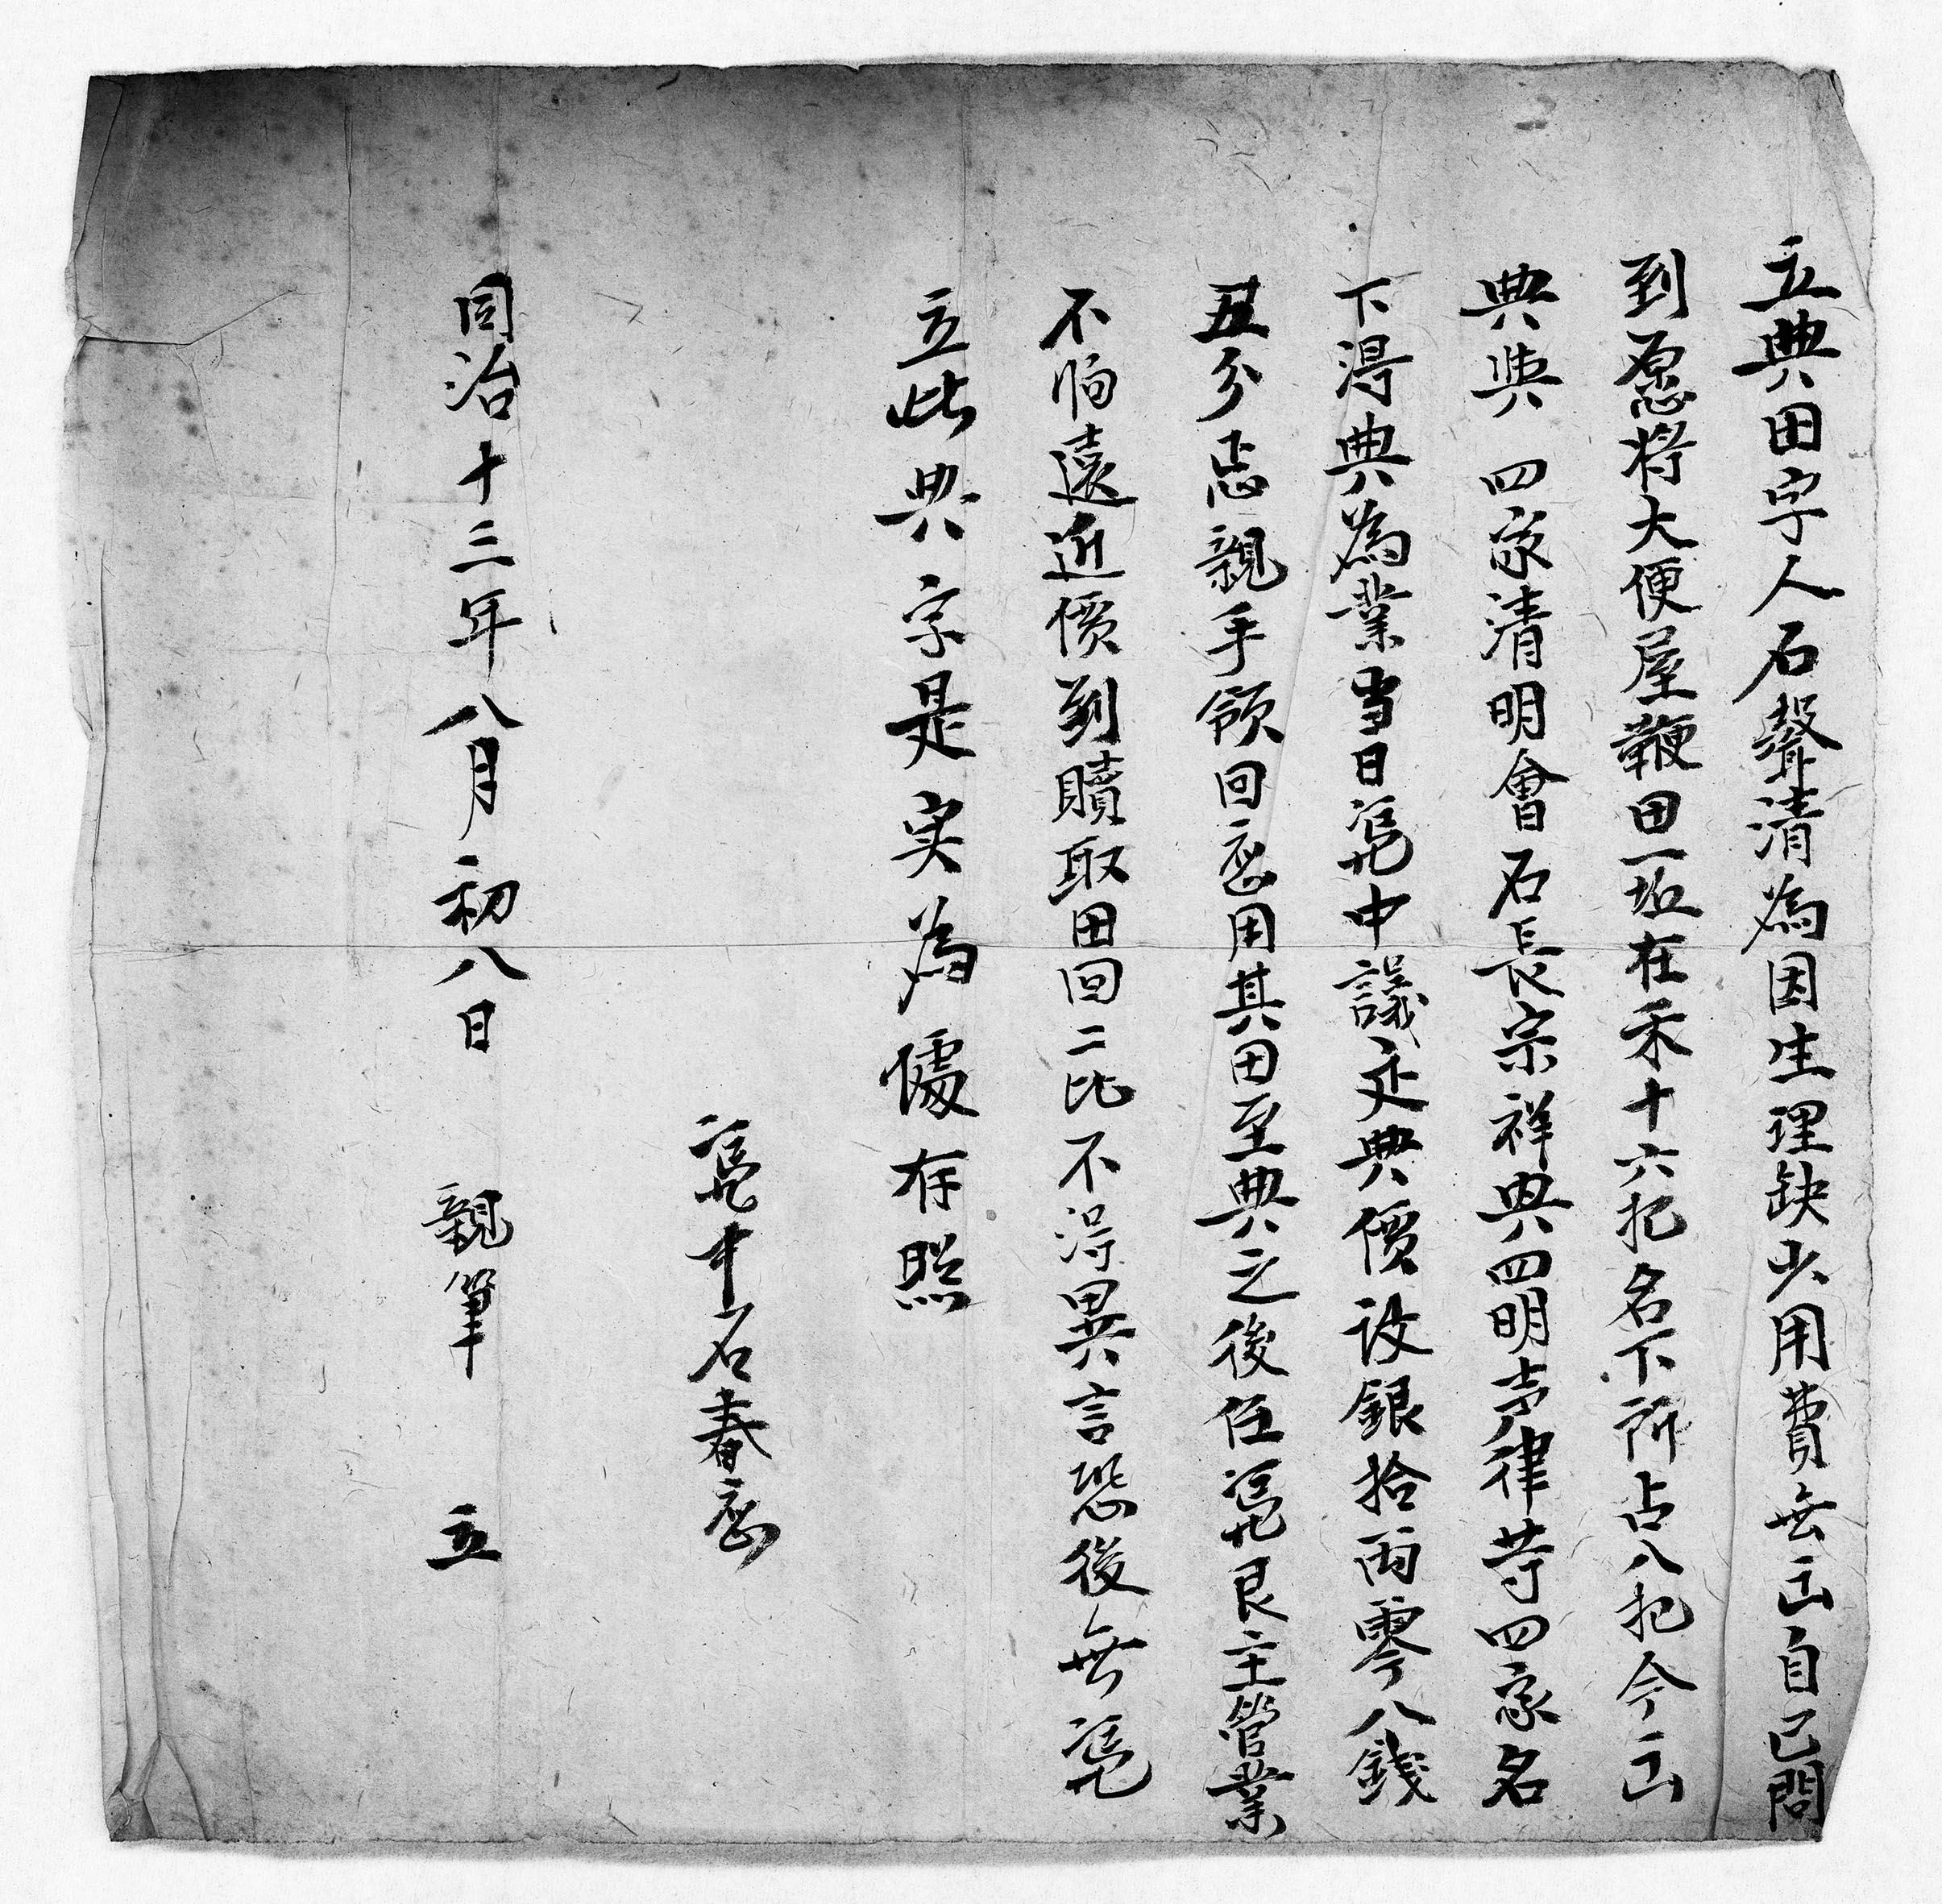 立典田字人石聲清為因生理缺少用費無出自己問
到愿將大便屋鞭田一坵在禾十六把名下所占八把今出
典與四家清明會石長宗祥典四明声律等四家名
下淂典為業当日凴中議定典價设銀拾両零八錢
丑分忐親手領回应用其田至典之後任凴艮主管業
不怕遠近價到贖取田回二比不淂異言恐後無凴
立此典字是实為㨿存照
凴中石春应
同治十三年八月初八日 親筆 立